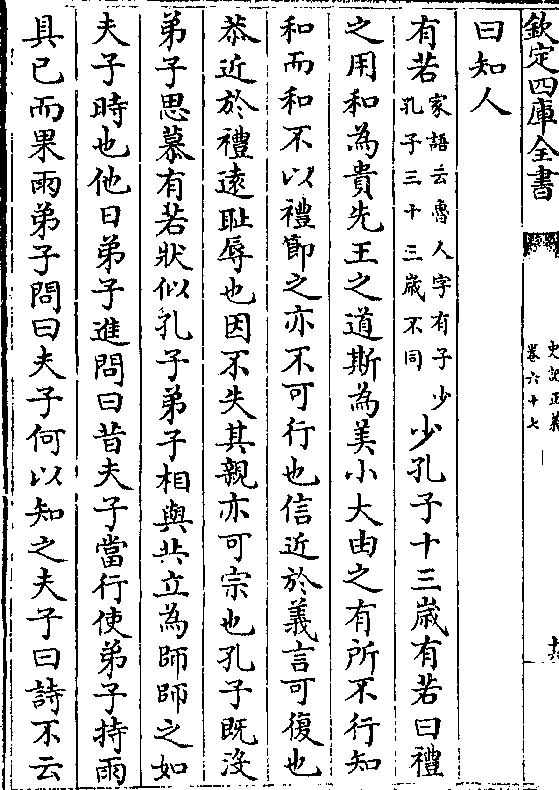 欽定四庫全書
史記正義
卷六十七
曰知人
有若家語云魯人字有子少孔子三十三歲不同少孔子十三歲有若曰禮
之用和為貴先王之道斯為美小大由之有所不行知
和而和不以禮節之亦不可行也信近於義言可復也
恭近於禮遠恥辱也因不失其親亦可宗也孔子既沒
弟子思慕有若狀似孔子弟子相與共立為師師之如
夫子時也他日弟子進問曰昔夫子當行使弟子持雨
具已而果雨弟子問曰夫子何以知之夫子曰詩不云